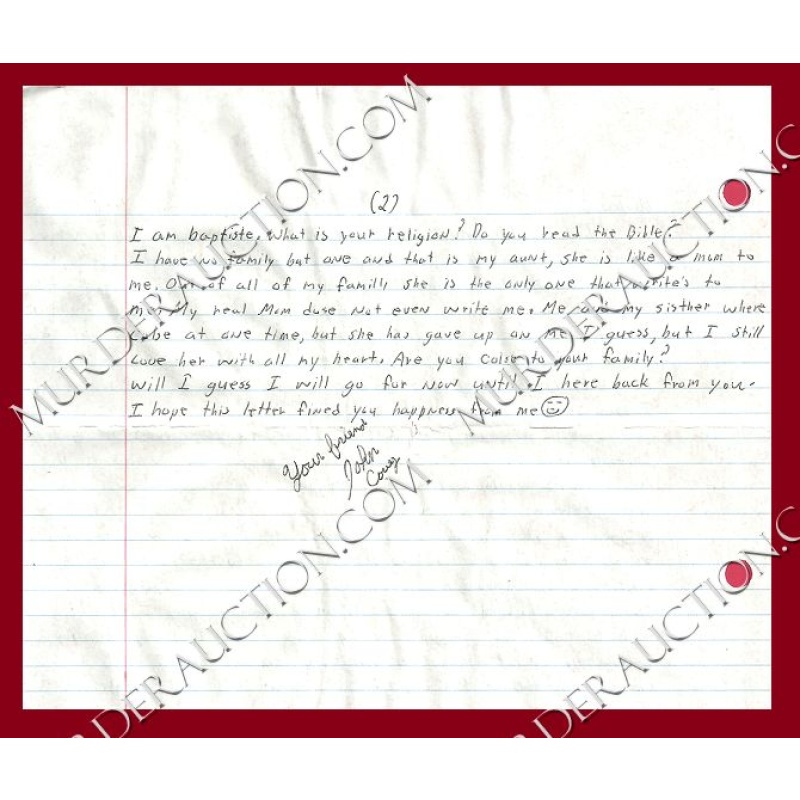 (2)
I am baptiste. What is your religion? Do you read the Bible?
I have no family but one and that is my aunt, she is like a mom to
me. Out of all of my familly she is the only one that write's to
me. My real Mom duse not even write me. Me and my sisther where
colse at one time, but she has gave up on me I guess, but I still
Love her with all my heart. Are you colse to your family?
Will I guess I will go for now until I here back from you.
I hope this letter fined you happness from me
Your friend
John
Couey
MURDERAUCTION.COM
MURDERAUCTION.COM
MURDERAUCTION.COM
MURDERAUCTION.COM